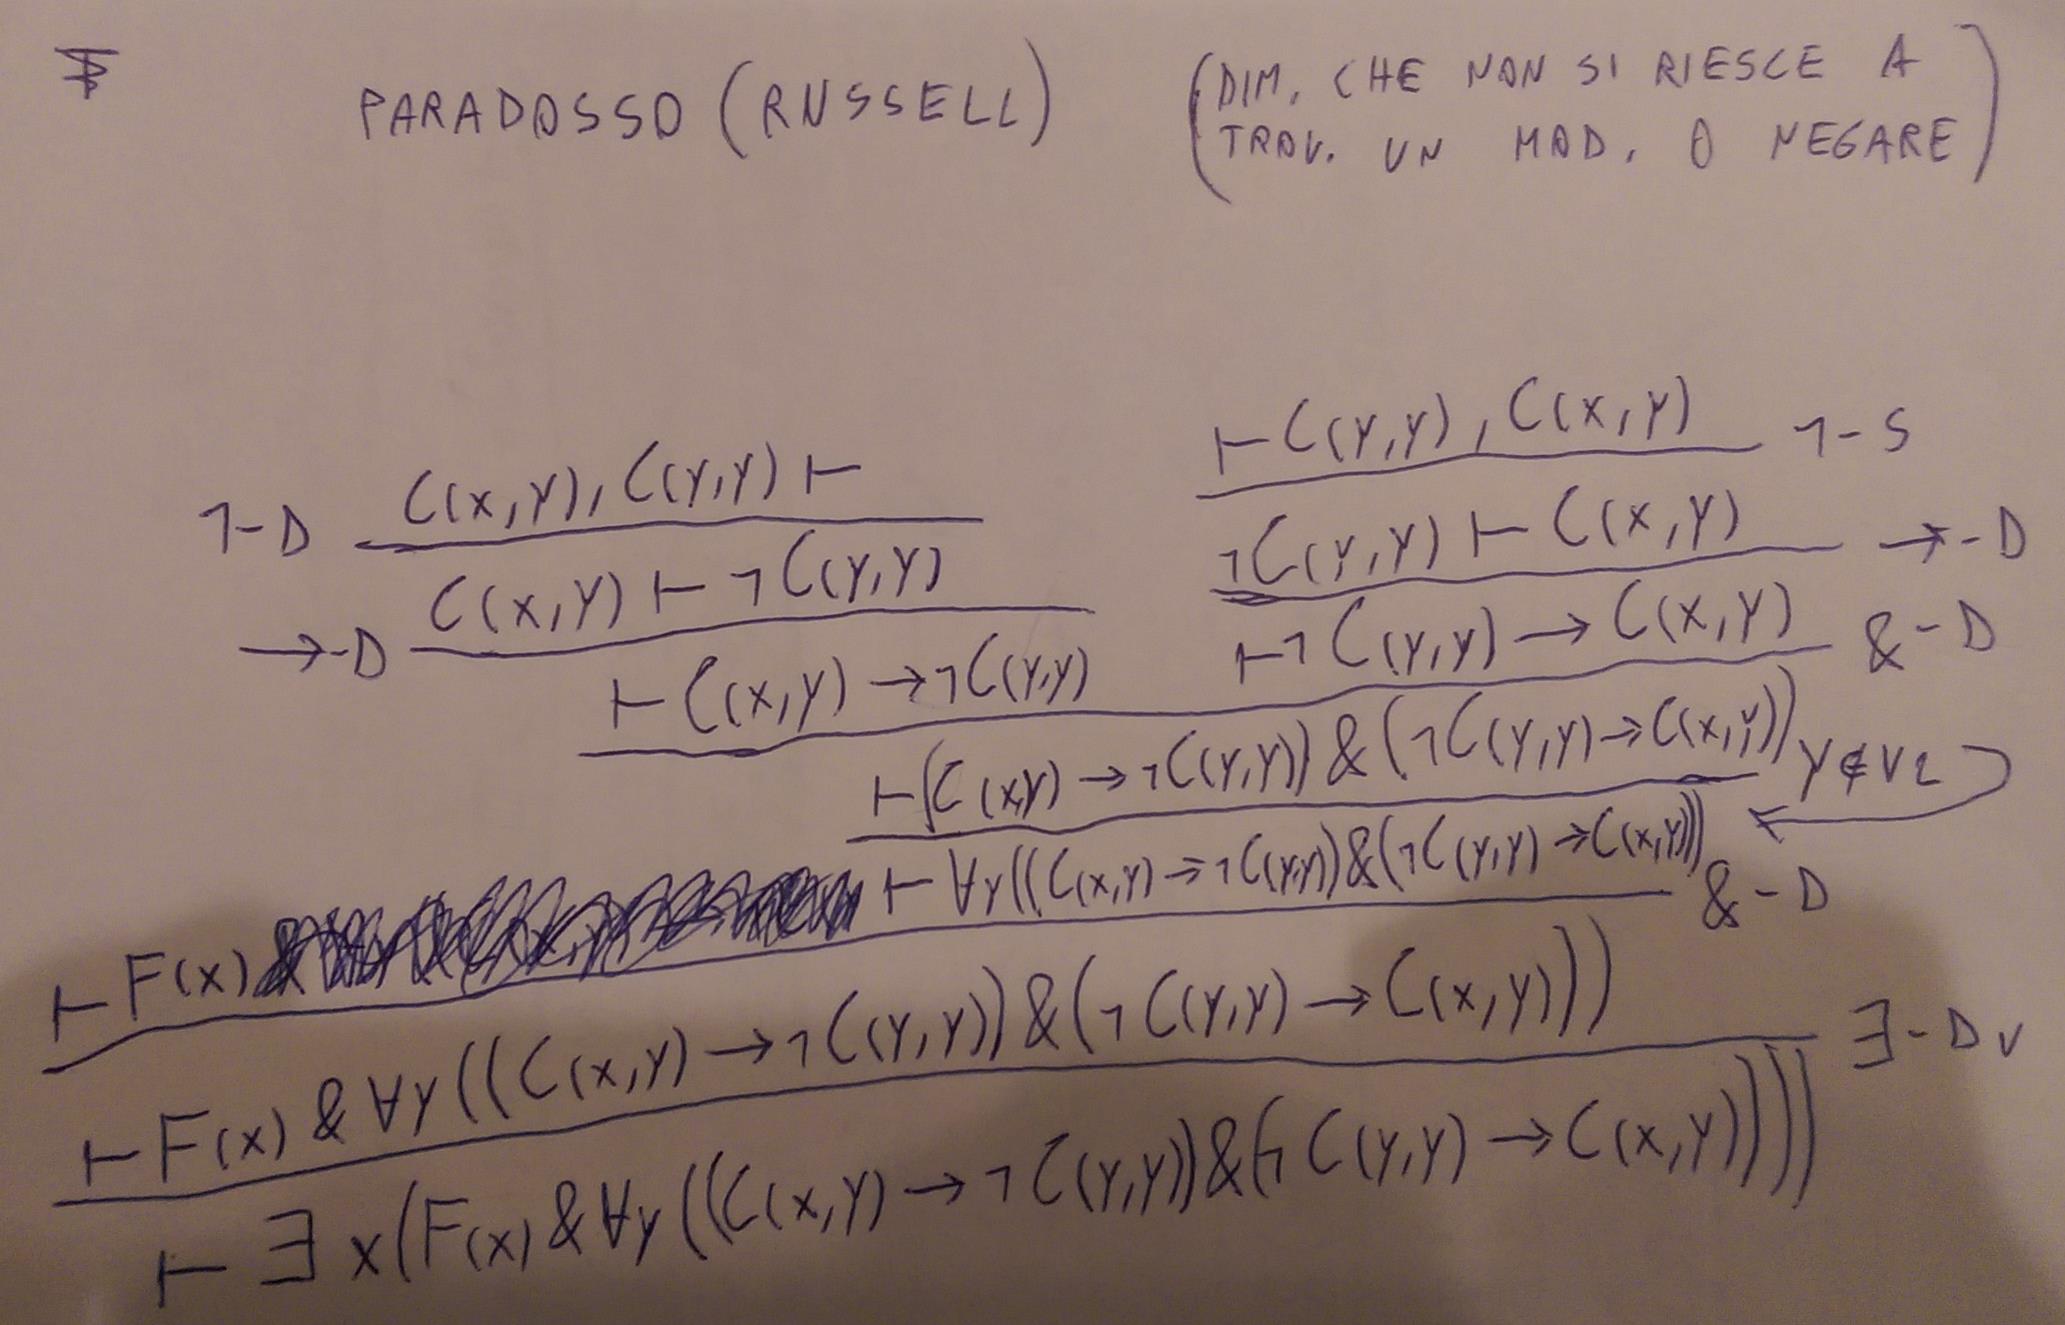 PARADOSSO (RUSSELL)
(DIM. CHE NON SI RIESCE A
TROV. UN MOD. O NEGARE)
⊢ C(y,y), C(x,y) ¬-S
¬-D C(x,y), C(y,y) ⊢
¬C(y,y) ⊢ C(x,y) →-D
C(x,y) ⊢ ¬C(y,y)
→-D
⊢ ¬C(y,y) → C(x,y) &-D
⊢ C(x,y) → ¬C(y,y)
⊢ (C(x,y) → ¬C(y,y)) & (¬C(y,y) → C(x,y)) y ∉ VL
⊢ F(x) ⊢ ∀y((C(x,y) → ¬C(y,y)) & (¬C(y,y) → C(x,y))) &-D
⊢ F(x) & ∀y((C(x,y) → ¬C(y,y)) & (¬C(y,y) → C(x,y))) ∃-Dv
⊢ ∃x(F(x) & ∀y((C(x,y) → ¬C(y,y)) & (¬C(y,y) → C(x,y))))